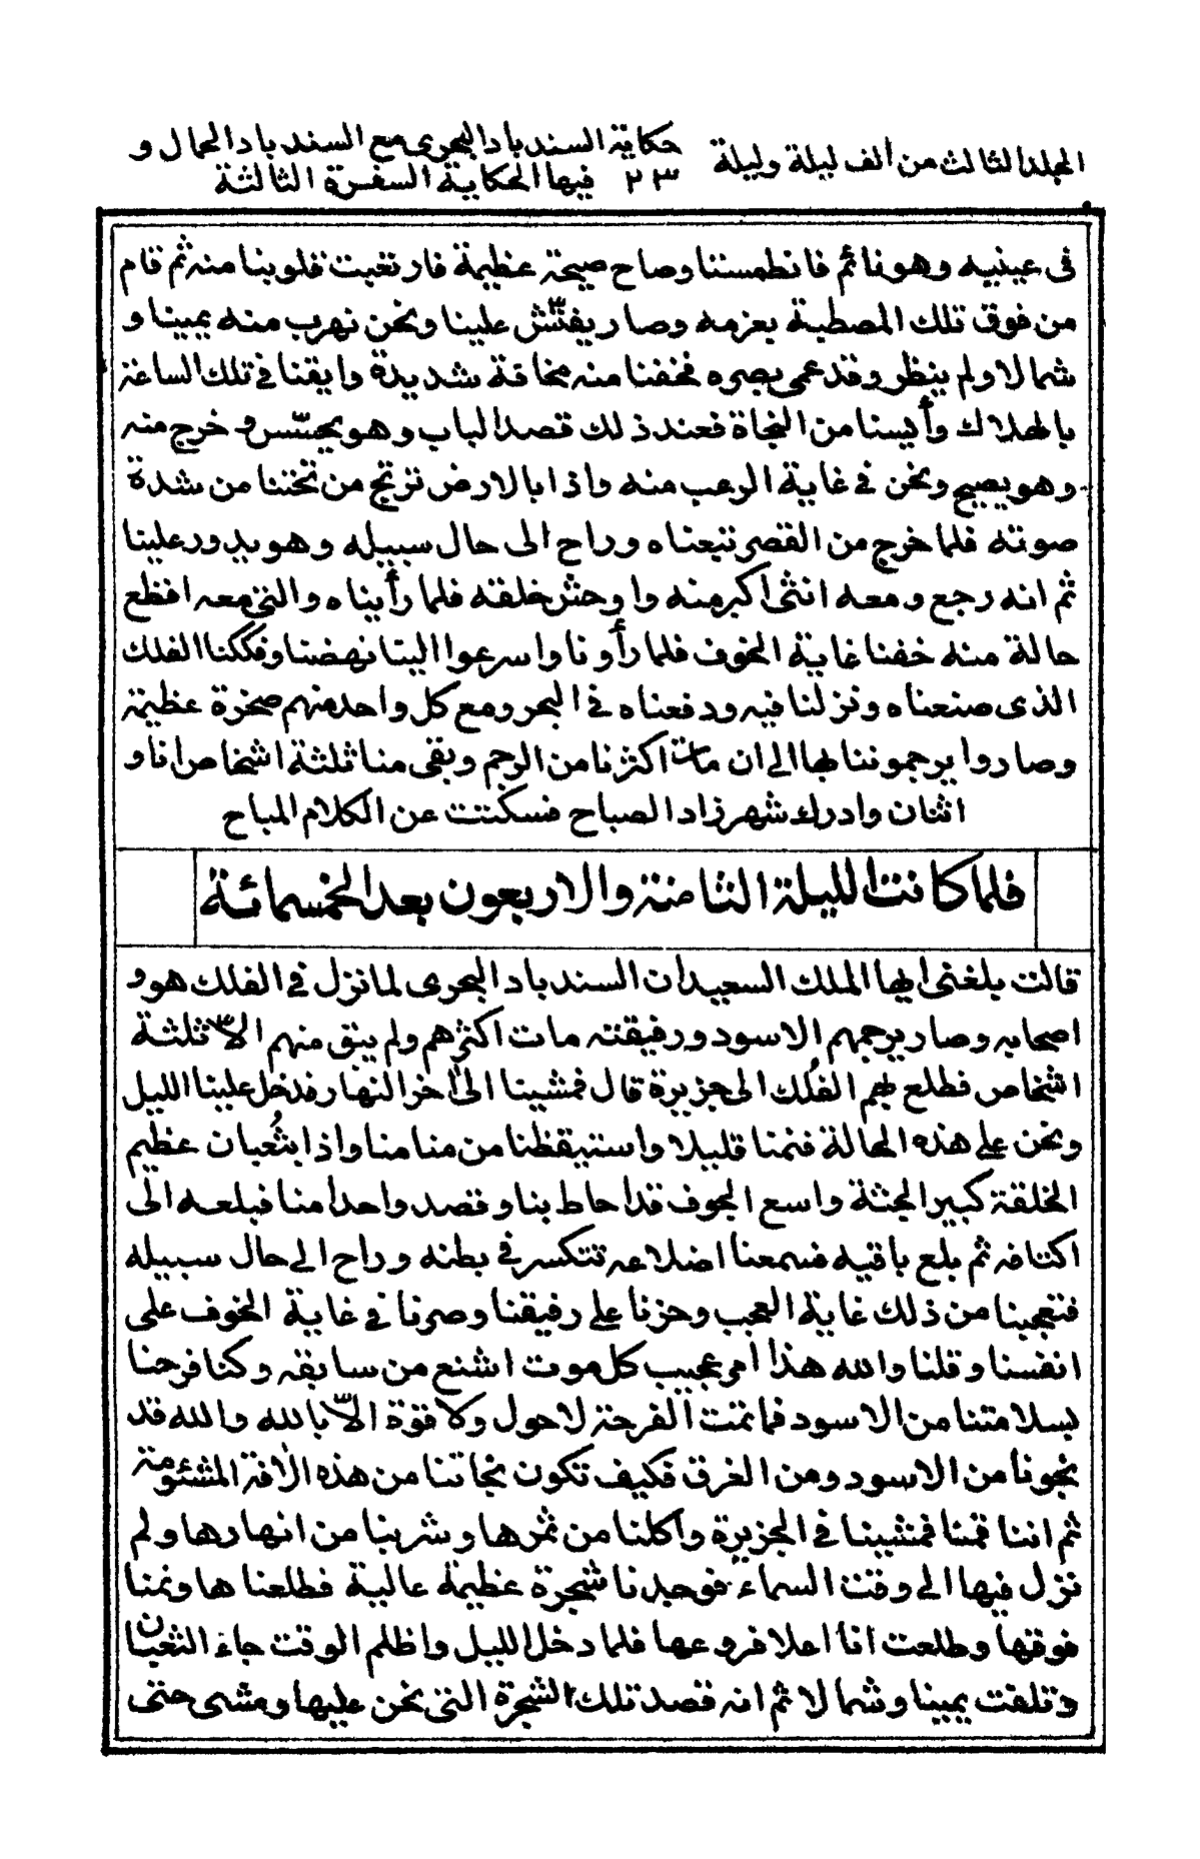 المجلد الثالث من ألف ليلة وليلة
حكاية السندباد البحرى مع السندباد الحمال و
٢٣ فيها الحكاية السفرة الثالثة
فى عينيه وهو نائم فانطمستا وصاح صيحة عظيمة فارتعبت قلوبنا منه ثم قام
من فوق تلك المصطبة بعزمه وصار يفتّش علينا ونحن نهرب منه يمينا و
شمالا ولم ينظر وقد عمى بصره فخفنا منه مخافة شديدة وايقنا فى تلك الساعة
بالهلاك وأيسنا من النجاة فعند ذلك قصد الباب وهو يحسّس وخرج منه
وهو يصيح ونحن فى غاية الرعب منه واذا بالارض ترتج من تحتنا من شدة
صوته فلما خرج من القصر تبعناه وراح الى حال سبيله وهو يدور علينا
ثم انه رجع ومعه انثى اكبر منه واوحش خلقه فلما رأيناه والتى معه افظع
حالة منه خفنا غاية الخوف فلما رأونا واسرعوا الينا نهضنا وفككنا الفلك
الذى صنعناه ونزلنا فيه ودفعناه فى البحر ومع كل واحد منهم صخرة عظيمة
وصاروا يرجموننا بها الى ان مات اكثرنا من الرجم وبقى منا ثلثة اشخاص انا و
اثنان وادرك شهرزاد الصباح فسكتت عن الكلام المباح
فلما كانت الليلة الثامنة والاربعون بعد الخمسمائة
قالت بلغنى ايها الملك السعيد ان السندباد البحرى لما نزل فى الفلك هو و
اصحابه وصار يرجمهم الاسود ورفيقته مات اكثرهم ولم يبق منهم الّا ثلثة
اشخاص فطلع بهم الفُلك الى جزيرة قال فمشينا الى آخر النهار فدخل علينا الليل
ونحن على هذه الحالة فنمنا قليلا واستيقظنا من منامنا واذا بثُعبان عظيم
الخلقة كبير الجثة واسع الجوف قد احاط بنا وقصد واحدا منا فبلعه الى
اكتافه ثم بلع باقيه فسمعنا اضلاعه تتكسر فى بطنه وراح الى حال سبيله
فتعجبنا من ذلك غاية العجب وحزنا على رفيقنا وصرنا فى غاية الخوف على
انفسنا وقلنا والله هذا امر عجيب كل موت اشنع من سابقه وكنا فرحنا
بسلامتنا من الاسود فما تمت الفرحة لا حول ولا قوة الّا بالله والله قد
نجونا من الاسود ومن الغرق فكيف تكون نجاتنا من هذه الآفة المشئومة
ثم اننا قمنا فمشينا فى الجزيرة واكلنا من ثمرها وشربنا من انهارها ولم
نزل فيها الى وقت السماء فوجدنا شجرة عظيمة عالية فطلعناها ونمنا
فوقها وطلعت انا اعلا فروعها فلما دخل الليل واظلم الوقت جاء الثعبان
وتلفت يمينا وشمالا ثم انه قصد تلك الشجرة التى نحن عليها ومشى حتى